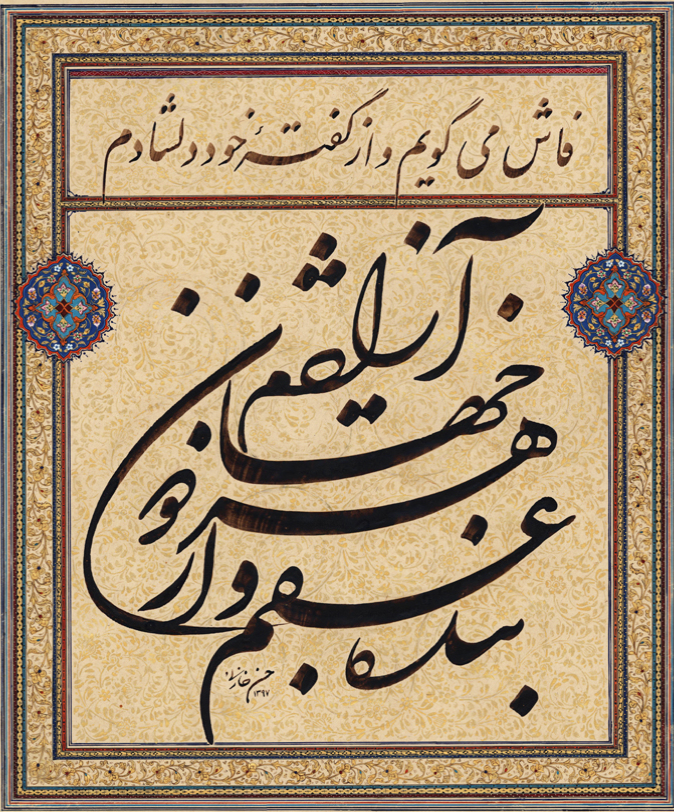 فاش می گویم و از گفتهٔ خود دلشادم
بنده عشقم و از هر دو جهان آزادم
حسن
۱۳۹۷